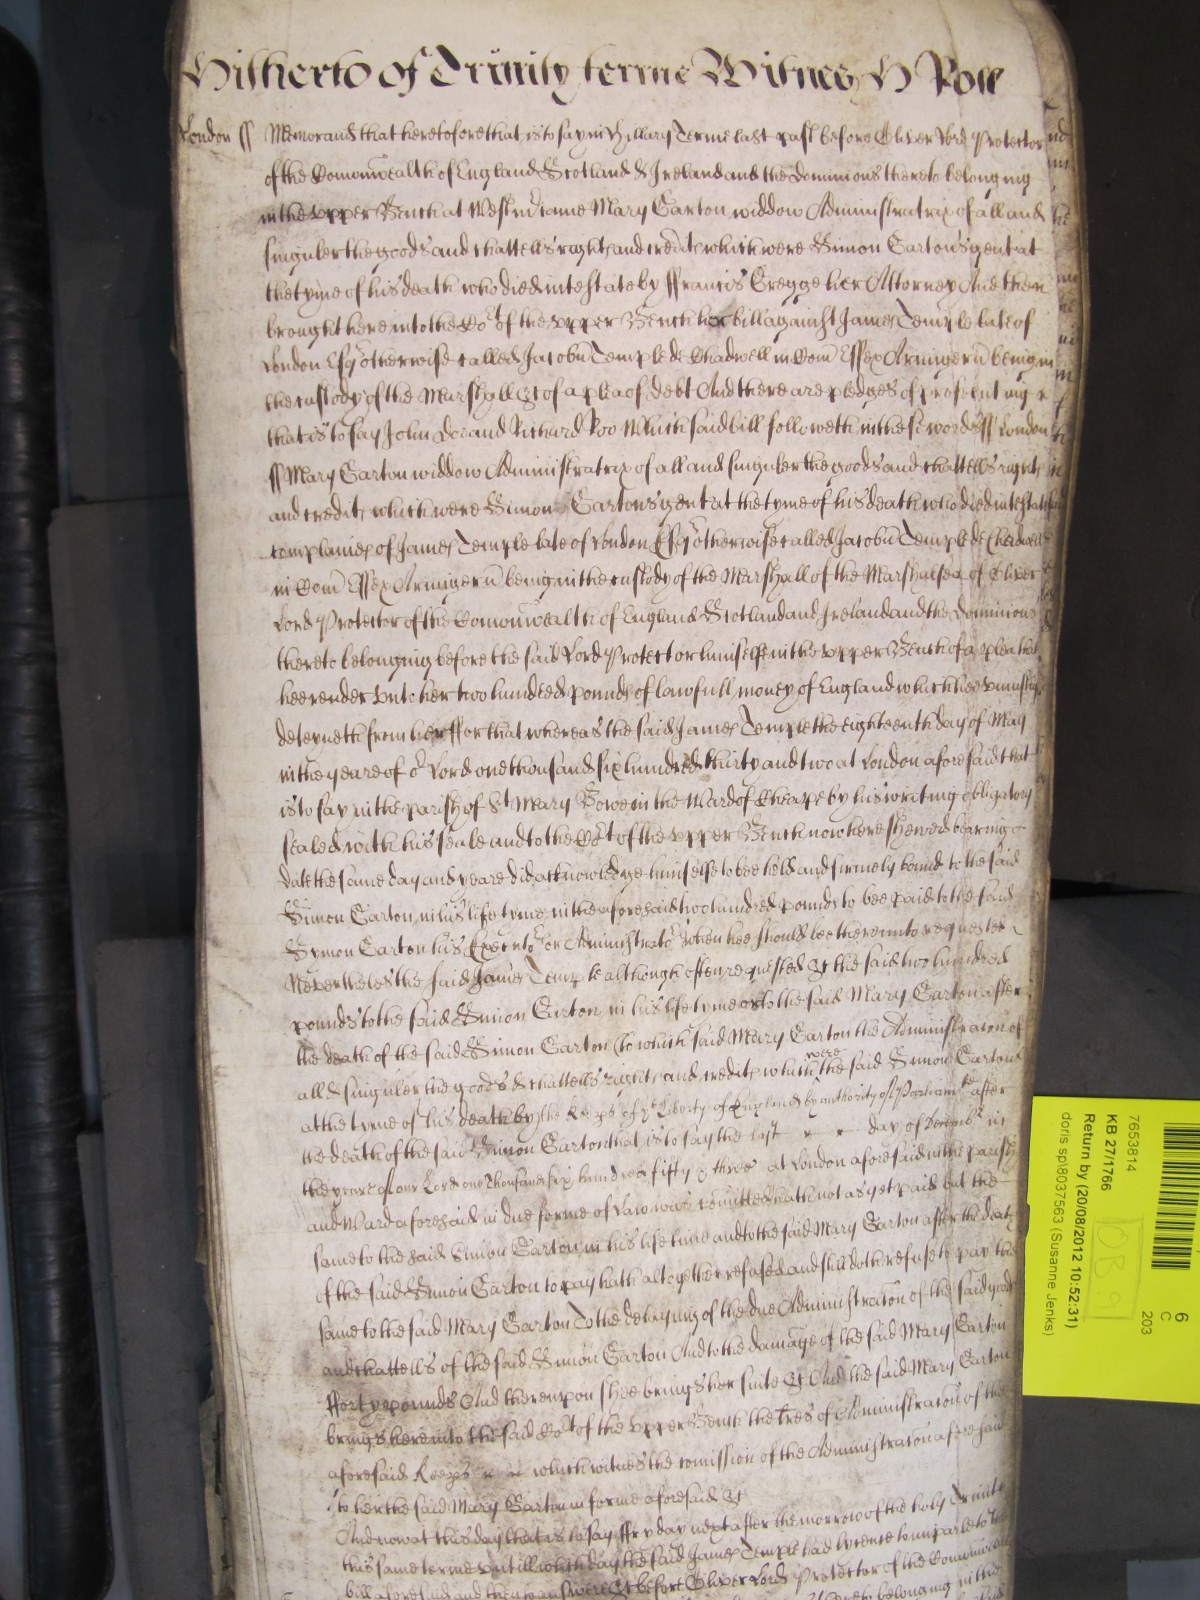 Hitherto of Trinity terme Witnes H Roll
London ss Memorand that heretofore that is to say in Hillary Terme last past before Oliver Lord Protector
of the Comonwealth of England Scotland & Ireland and the Dominions thereto belonging
in the upper Bench at Westm came Mary Carton widdow Administratrix of all and
singuler the goods and chattells rights and credits which were Simon Cartons gent at
the tyme of his death who died intestate by ffrancis Gregge her Attorney And then
brought here into the Cot of the upper Bench her bill against James Temple late of
London Esqr otherwise called Jacobu Temple de Chadwell in Com Essex Armigeru being in
the custody of the Marshall &c of a plea of debt And there are pledges of prosecuting
that is to say John Doe and Richard Roo Which said bill followeth in these words ss London
ss Mary Carton widdow Administratrix of all and singuler the goods and chattells rights
and credits which were Simon Cartons gent at the tyme of his death who died intestate
complaines of James Temple late of London Esqr otherwise called Jacobu Temple de Chadwell
in Com Essex Armigeru being in the custody of the Marshall of the Marshalsea of Oliver
Lord Protector of the Comonwealth of England Scotland and Ireland and the Dominions
thereto belonging before the said Lord Protector himselfe in the upper Bench of a plea that
hee render unto her two hundred pounds of lawfull money of England which hee uniustly
deteyneth from her ffor that whereas the said James Temple the eighteenth day of May
in the yeare of or Lord one thousand six hundred thirty and two at London aforesaid that
is to say in the parish of St Mary Bowe in the Ward of Cheape by his writing obligatory
sealed with his seale and to the Cot of the upper Bench now here shewed bearing
date the same day and yeare did acknowledge himselfe to bee held and firmely bound to the said
Simon Carton in his life tyme in the aforesaid two hundred pounds to bee paid to the said
Symon Carton his Executor or Administrator when hee should bee thereunto requested
Neverthelesse the said James Temple although often requested &c the said two hundred
pounds to the said Simon Carton in his life tyme or to the said Mary Carton after
the death of the said Simon Carton (to which said Mary Carton the Administracon of
all & singuler the goods & chattells rights and credits which were the said Simon Cartons
at the tyme of his death by the Keeps of ye Liberty of England by authority of Parliamt after
the death of the said Simon Carton that is to say the last day of Decembr in
the yeare of our Lord one thousand six hundred fifty & three at London aforesaid in the parish
and Ward aforesaid in due forme of law was comitted) hath not as yet paid but the
same to the said Simon Carton in his life time and to the said Mary Carton after the death
of the said Simon Carton to pay hath altogether refused and still doth refuse to pay the
same to the said Mary Carton To the delaying of the due Administracon of the said goods
and chattells of the said Simon Carton And to the damage of the said Mary Carton
fforty pounds And thereupon shee brings her suite &c And the said Mary Carton
brings here into the said Cot of the upper Bench the lres of Administracon of the
aforesaid Keeps which witnes the comission of the Administracon aforesaid
to her the said Mary Carton in forme aforesaid &c
And now at this day that is to say ffryday next after the morrow of the holy Trinity
this same terme untill which day the said James Temple had lycence to imparle to the
bill aforesaid and then to answere &c before Oliver Lord Protector of the Comonwealth
thereto belonging in the
7653814
KB 27/1766
Return by (20/08/2012 10:52:31)
doris sp\8037563 (Susanne Jenks)
6
C
203